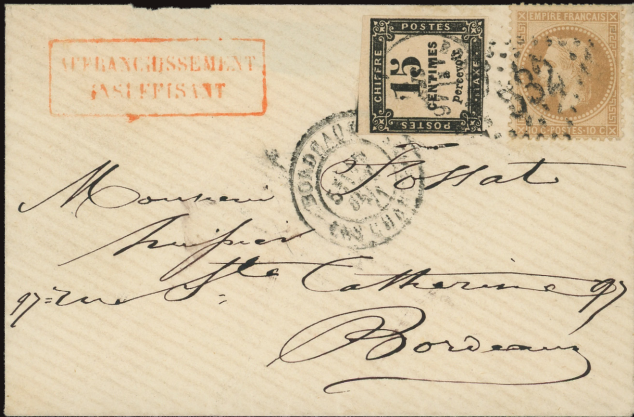 AFFRANCHISSEMENT
INSUFFISANT
POSTES
CHIFFRE
15
CENTIMES
percevoir
TAXE
POSTES
EMPIRE FRANÇAIS
10 C POSTES 10 C
532
BORDEAUX
Monsieur
huissier
97 = rue Ste Catherine 97
Bordeaux